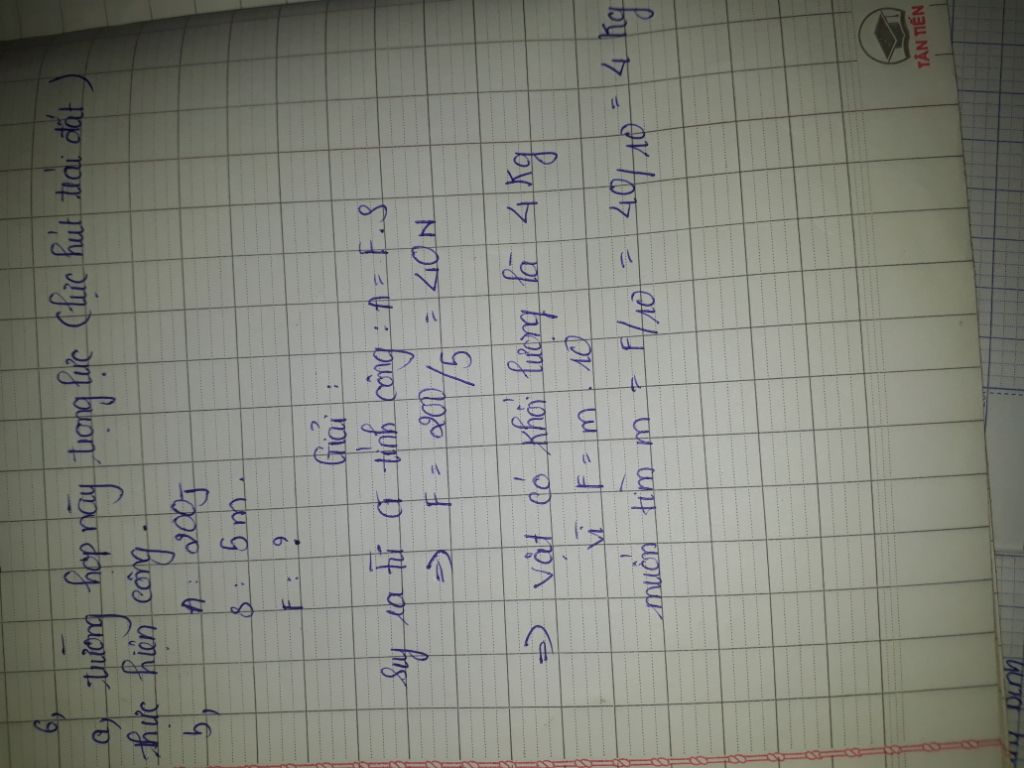 6,
a, trường hợp này trọng lực (lực hút trái đất)
thực hiện công.
b, A: 200J
S: 5m.
F: ?
Giải:
suy ra từ CT tính công: A = F.S
=> F = 200/5 = 40N
=> vật có khối lượng là 4 kg
vì F = m . 10
muốn tìm m = F/10 = 40/10 = 4 kg
TÂN TIẾN